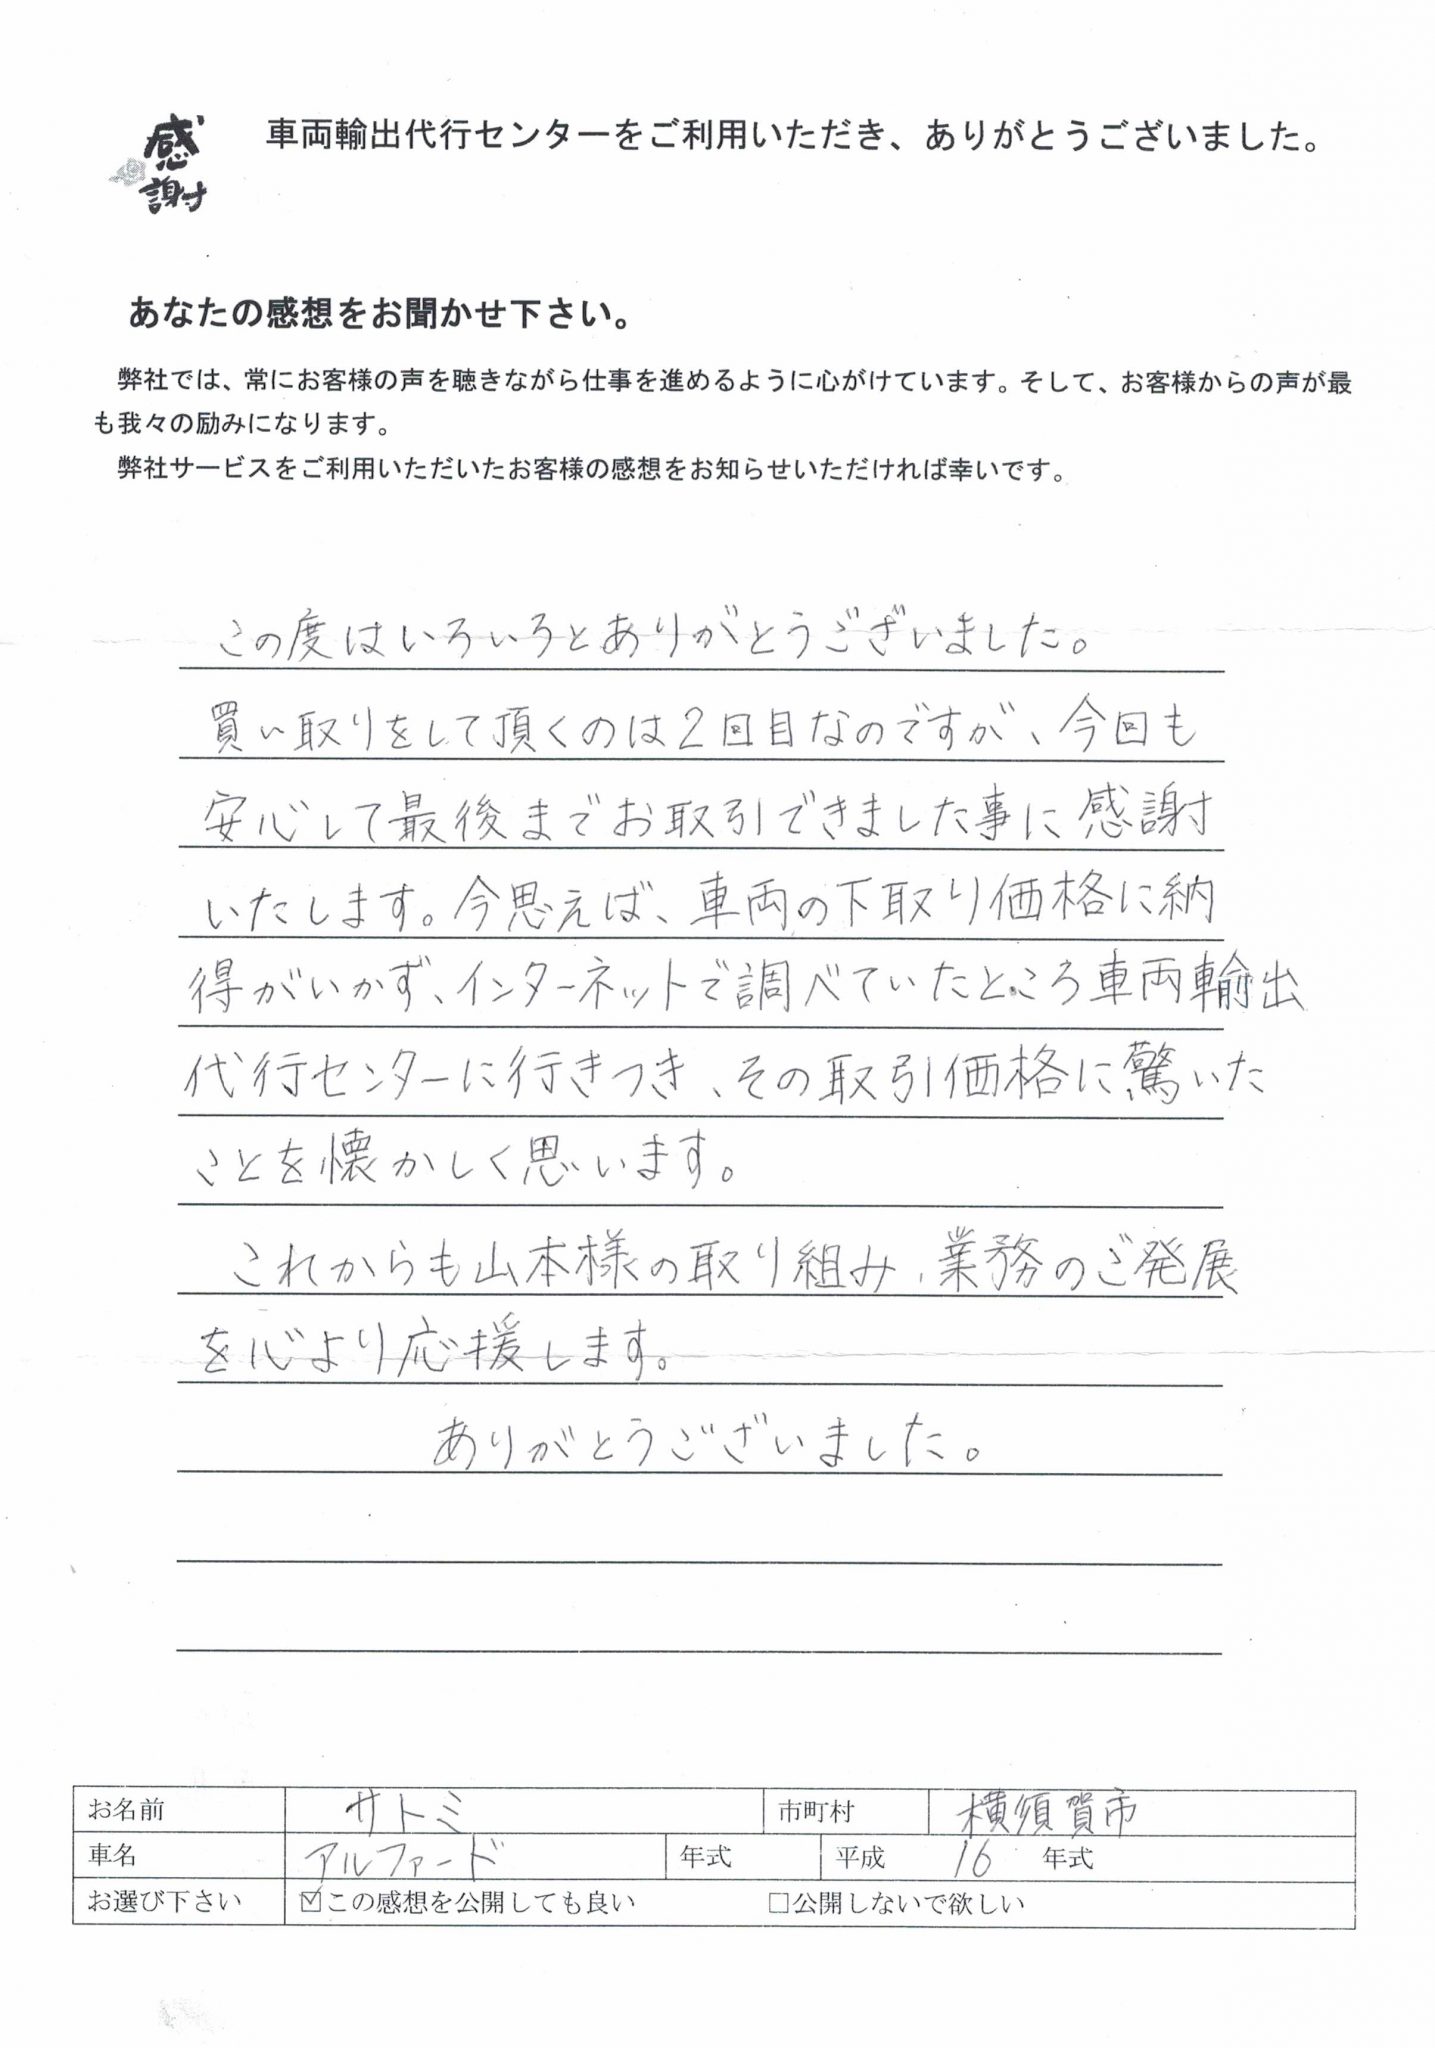 感謝
車両輸出代行センターをご利用いただき、ありがとうございました。
あなたの感想をお聞かせ下さい。
弊社では、常にお客様の声を聴きながら仕事を進めるように心がけています。そして、お客様からの声が最
も我々の励みになります。
弊社サービスをご利用いただいたお客様の感想をお知らせいただければ幸いです。
この度はいろいろとありがとうございました。
買い取りをして頂くのは2回目なのですが、今回も
安心して最後までお取引できました事に感謝
いたします。今思えば、車両の下取り価格に納
得がいかず、インターネットで調べていたところ車両輸出
代行センターに行きつき、その取引価格に驚いた
ことを懐かしく思います。
これからも山本様の取り組み、業務のご発展
を心より応援します。
ありがとうございました。
お名前 サトミ 市町村 横須賀市
車名 アルファード 年式 平成 16 年式
お選び下さい ☑この感想を公開しても良い □公開しないで欲しい